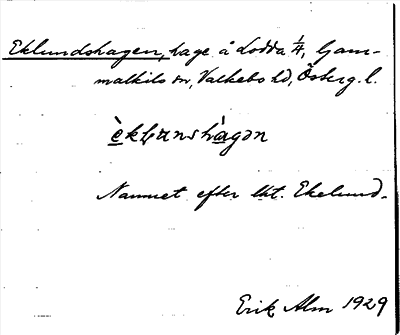 Eklundshagen, hage å Lodda 1/4, Gam-
malkils sn, Valkebo hd, Österg. l.
èklunshàgən
Namnet efter lht. Ekelund.
Erik Alm 1929